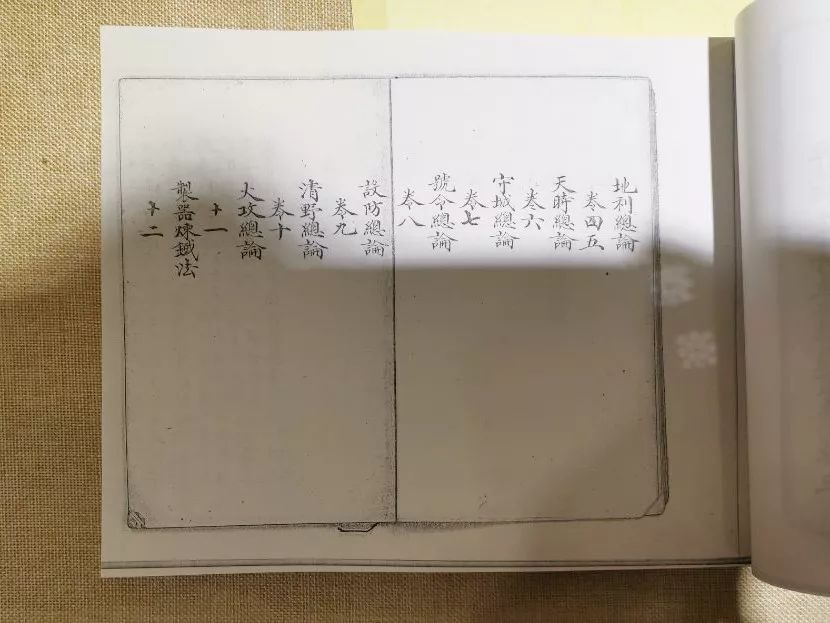 地利總論
卷四五
天時總論
卷六
守城總論
卷七
號令總論
卷八
設防總論
卷九
清野總論
卷十
火攻總論
十一
製器煉鐵法
十二